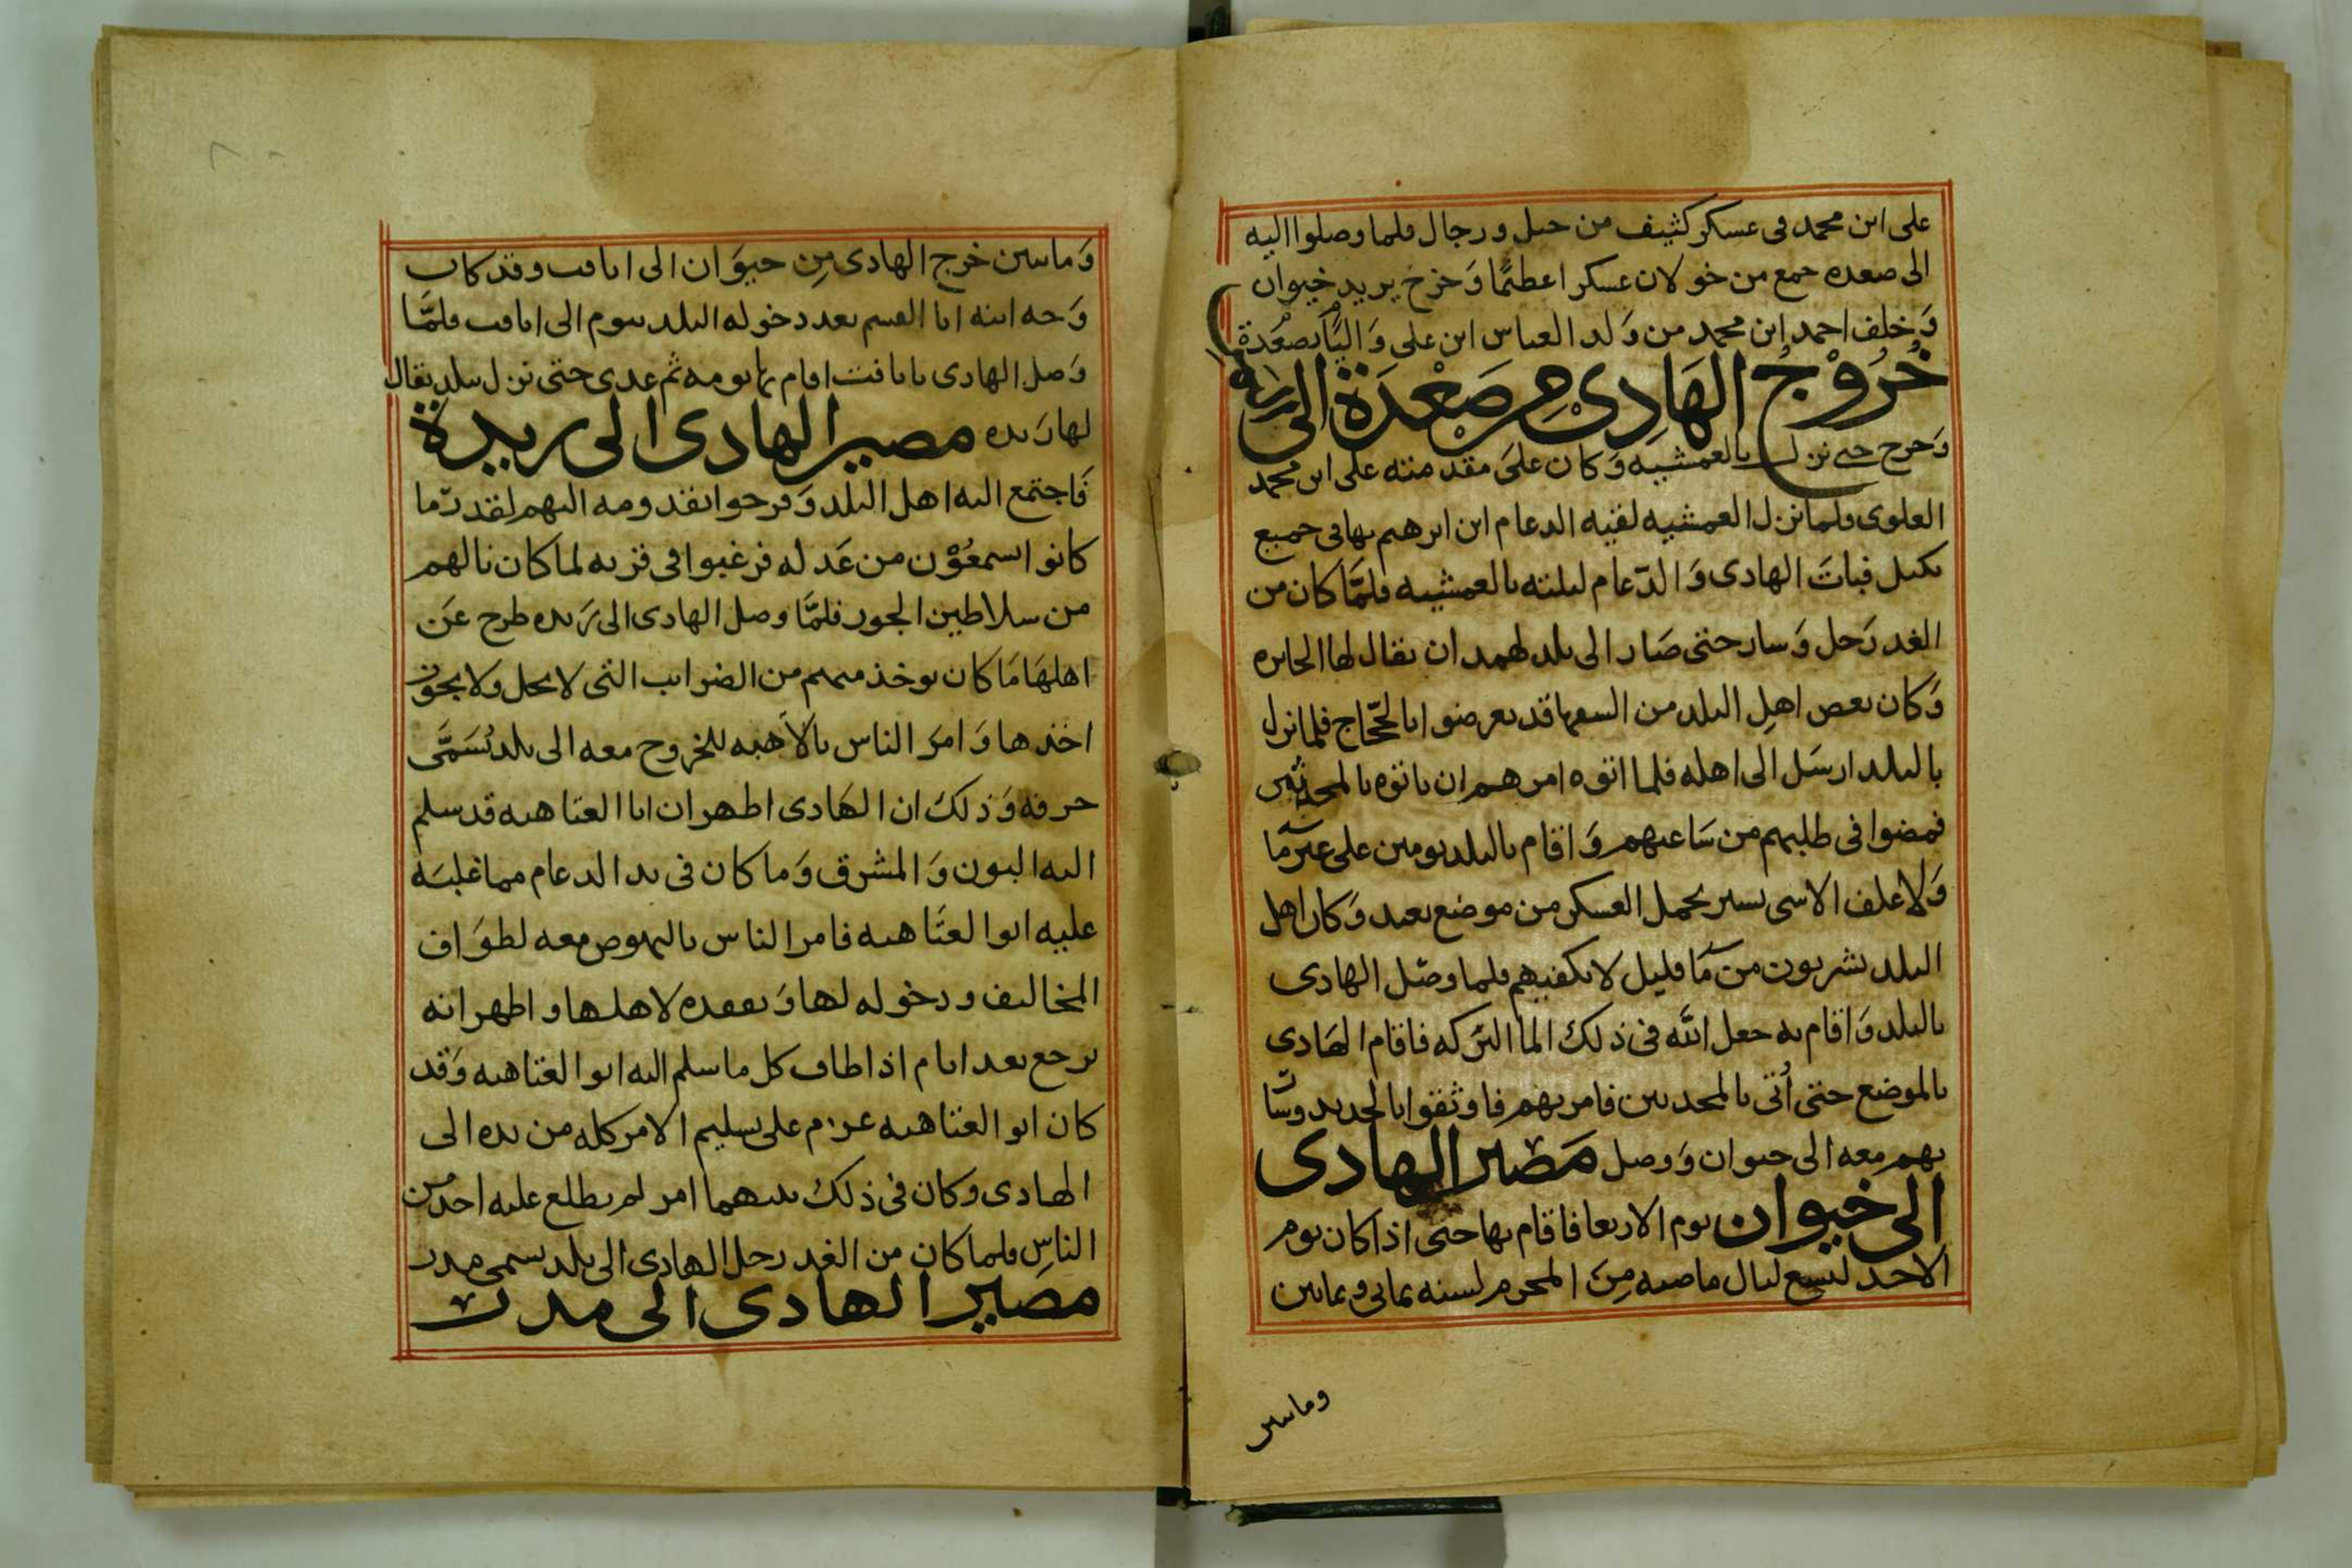 على ابن محمد فى عسكر كثيف من خيل ورجال فلما وصلوا اليه
الى صعده جمع من خولان عسكرا عظيمًا وَخرج يريد خيوان
وَخلف احمد ابن محمد من وَلد العباس ابن على وَاليًا بصَعْدة
خُرُوْجُ الهَادِى مِن صَعْدَة الى
وَخرج حتى نزل بالعمشيه وَكان عَلىَ مقدمته على ابن محمد
العلوى فلما نزل العمشيه لقيه الدعام ابن ابرهيم بها فى جميع
بكيل فباتَ الهادى وَالدّعام ليلته بالعمشيه فلمَّا كان من
الغد رَحل وَسار حتى صَار الى بلد لهمدان يقال لها الحايره
وَكان بعض اهلِ البلد من السفها قد تعرضوا بالحّجاج فلما نزل
بالبلد ارسَل الى اهله فلما اتوه امرهم ان ياتوه بالمحدثين
فمضوا فى طلبهم من سَاعتهم وَاقام بالبلد يومين على غير مَآ
وَلا علف الا شى يسير يحمل العسكر من موضع بعيد وَكان اهل
البلد يشربون من مَآ قليل لا يكفيهم فلما وصَل الهادى
بالبلد وَاقام به جعل الله فى ذلك الما البَركه فاقام الهَادى
بالموضع حتى أتى بالمحدثين فامر بهم فاوثقوا بالحديد وسَار
بهم معه الى خيوان وَوصل مَصير الهادى
الى خيوان يوم الاربعا فاقام بها حتى اذا كان يوم
الاحد لتسع ليال ماضيه مِنَ المحرم لسنه ثمانى وثمانين
وماتين
وَماتين خرج الهادى مِن خيوَان الى اثافت وقد كان
وَجه ابنه ابا القسم بعد دخوله البلد بيوم الى اثافت فلمَّا
وَصل الهادى باثافت اقام بها يومه ثم غدى حتى نزل ببلد يقال
لها رَيده مصير الهادى الى ريدة
فَاجتمع اليه اهل البلد وَفرحوا بقدومه اليهم لقدر مّا
كانوا يسمعُوْن من عَدله فرغبوا فى قربه لما كان نالهم
من سلاطين الجور فلمَّا وصل الهادى الى رَيده طرح عَن
اهلهَا مَا كان يوخذ منهم من الضرايب التى لا يحل ولا يجوز
اخذها وَامرَ الناس بالأهبه للخروج معه الى بلد تُسَمَّى
حرفه وَذلك ان الهَادى اظهر ان ابا العتاهيه قد سلم
اليه البون وَالمشرق وَما كان فى يد الدعام مما غلبَه
عليه ابوا العتَاهيه فامر الناس بالنهوض معه لطوَاف
المخاليف ودخوله لها وَتفقده لاهلها واظهر انه
يرجع بعد ايام اذا طاف كل ما سلم اليه ابوا العتاهيه وَقد
كان ابو العتاهيه عزم على تسليم الامر كله من يده الى
الهادى وكان فى ذلك بينهما امر لم يطلع عليه احد من
الناسِ فلما كان من الغد رحل الهادى الى بلد يسمى مدر
مصير الهادى الى مدر